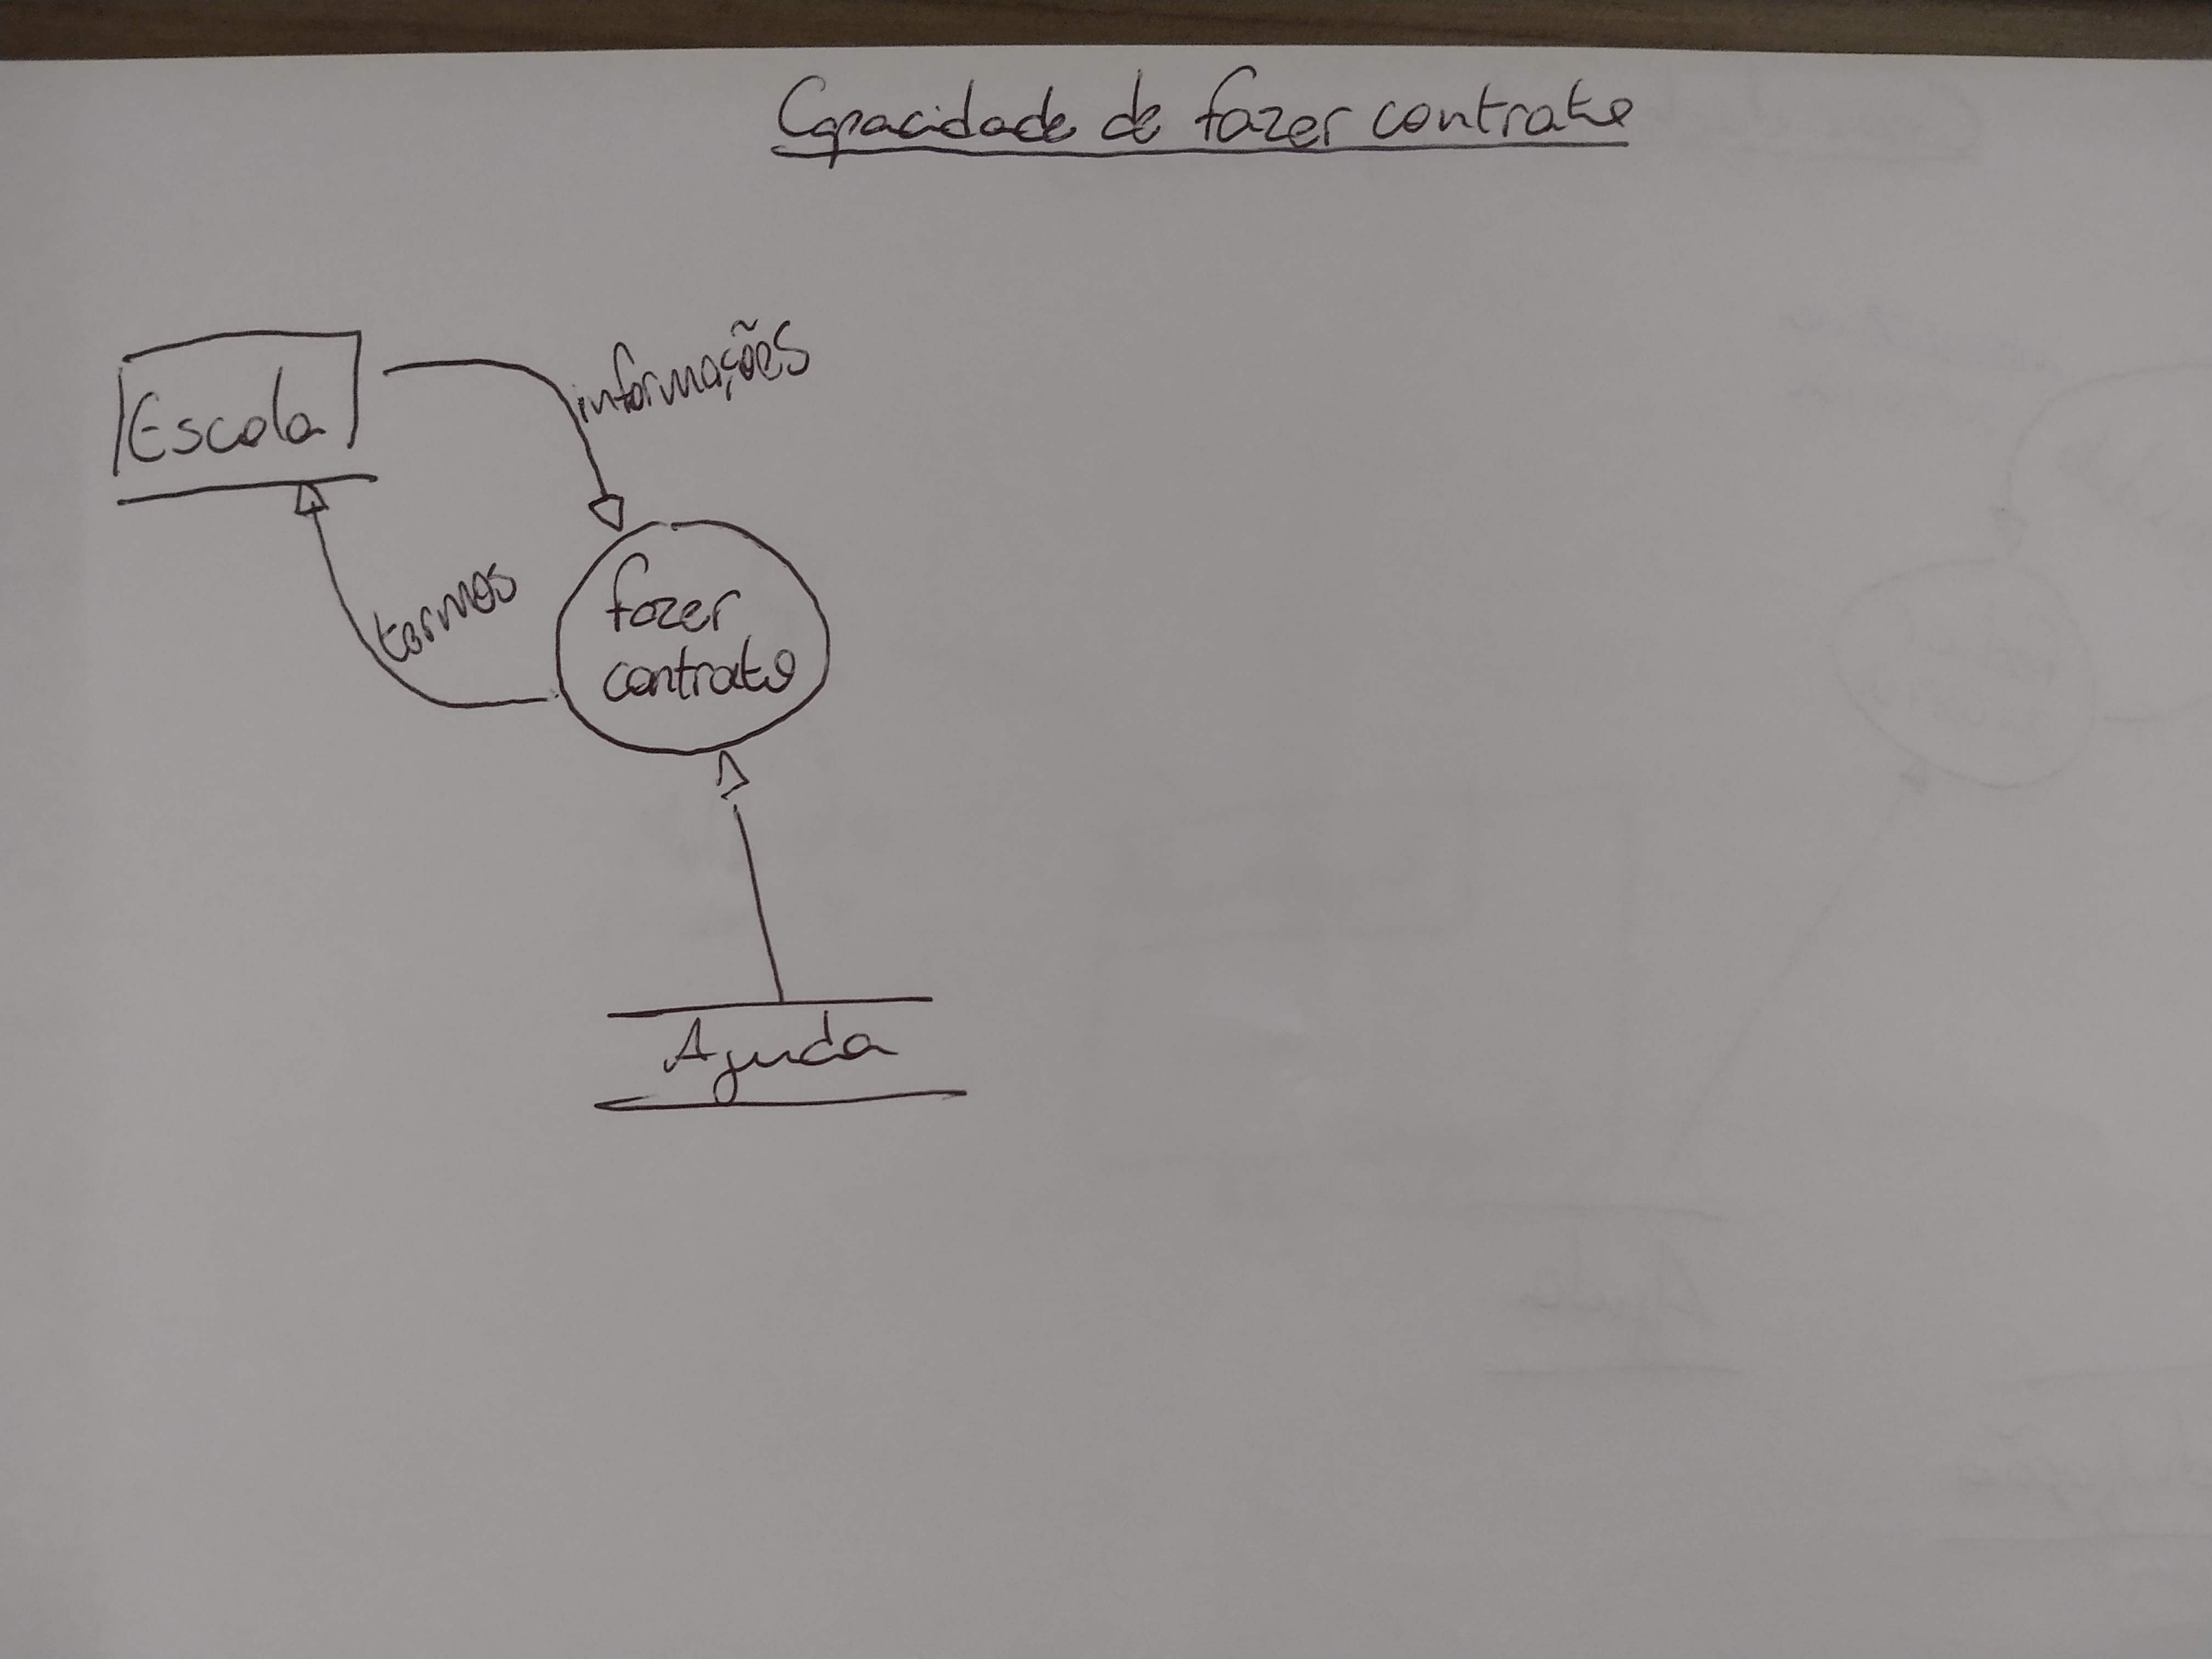 Capacidade de fazer contrato
informações
Escola
termos
fazer
contrato
Ajuda